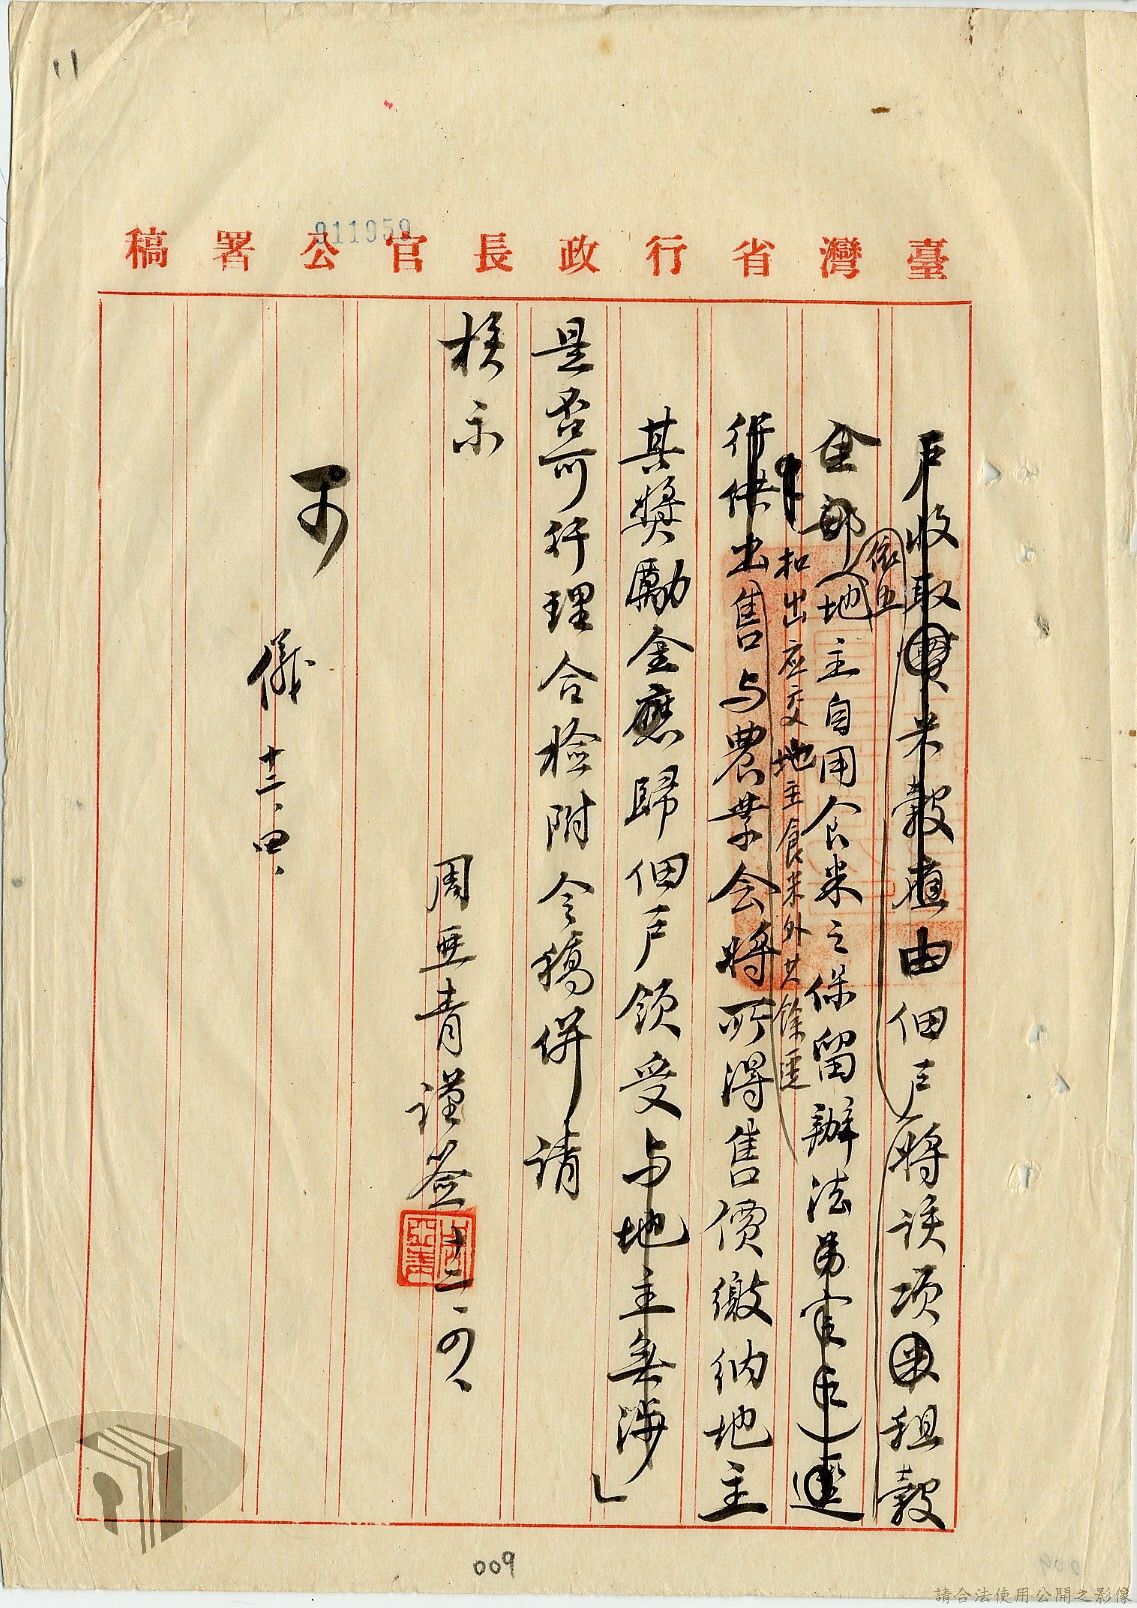 11
911959
臺灣省行政長官公署稿
戶收取實米穀應由佃戶將該項田租穀
依五
全部(地主自用食米之保留辦法另案定之)逕
扣出应交地主食米外其餘逕
行供出售与農業会將所得售價繳納地主
其獎勵金應歸佃戶領受与地主無涉」
是否可行理合檢附令稿併請
核示
周亜青謹簽 十二、
可
儀 十二、四、
009
請合法使用公開之影像